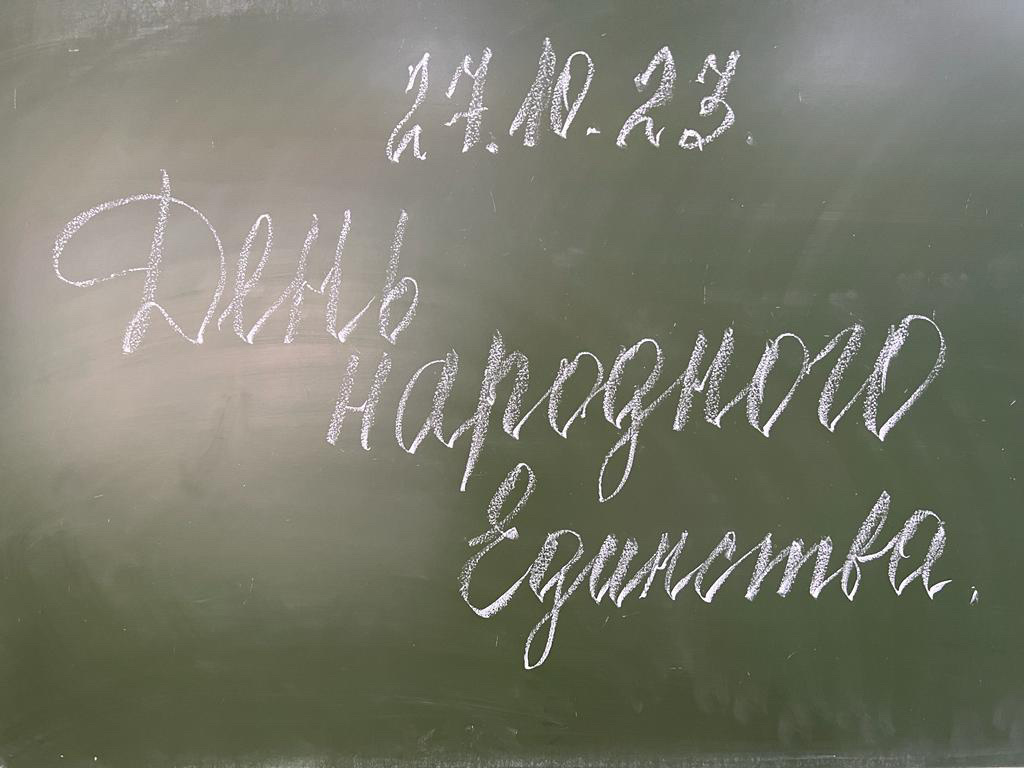 27.10.23.
День
народного
Единства.